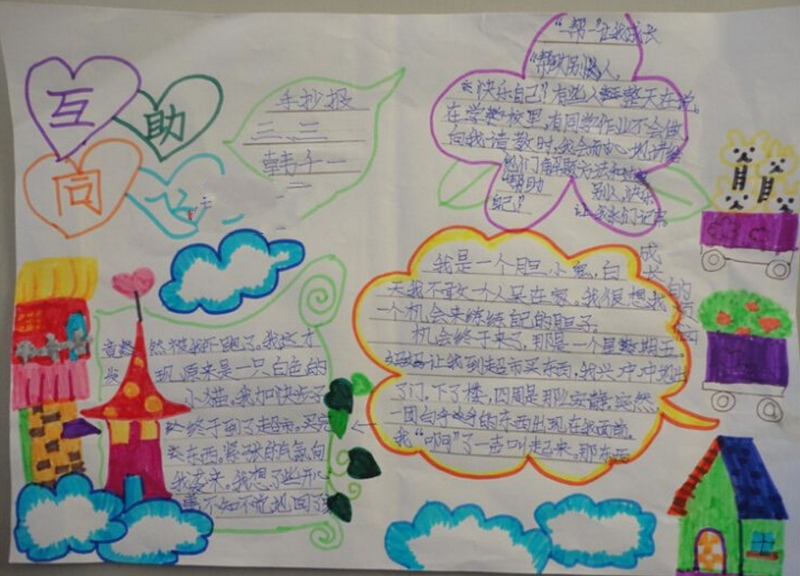 互
助
同
手抄报
三.三
韩子一
“帮一”让我成长
“帮助别人
快乐自己”有些人整天在说,
在学校里,有同学作业不会做
向我请教时,我会耐心地讲给
他们解题方法和
帮助 别人,快乐
自己” 让我们记
成长的
我是一个胆小鬼,白
天我不敢一个人呆在家,我很想找
一个机会来练练自己的胆子
机会终于来了,那是一个星期五
妈妈让我到超市买东西,我兴冲冲地出
了门,下了楼,四周是那么安静,突然
一团白乎乎的东西出现在我面前,
我“啊”了一声叫起来,那东西
竟然被我吓跑了,我这才
发现原来是一只白色的
小猫,我加快步子
终于到了超市,买完
东西,紧张的气氛向
我袭来,我想了些开心
事不知不觉地回了家